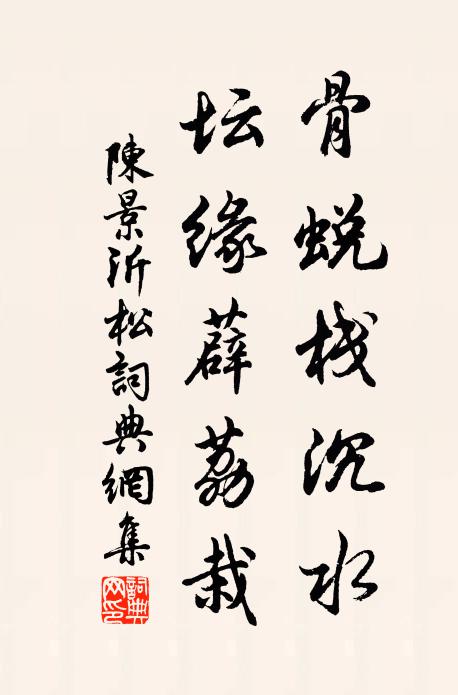 骨蜕栈沉水
坛缘薜荔栽
陳景沂松詞典網集
詞典网印